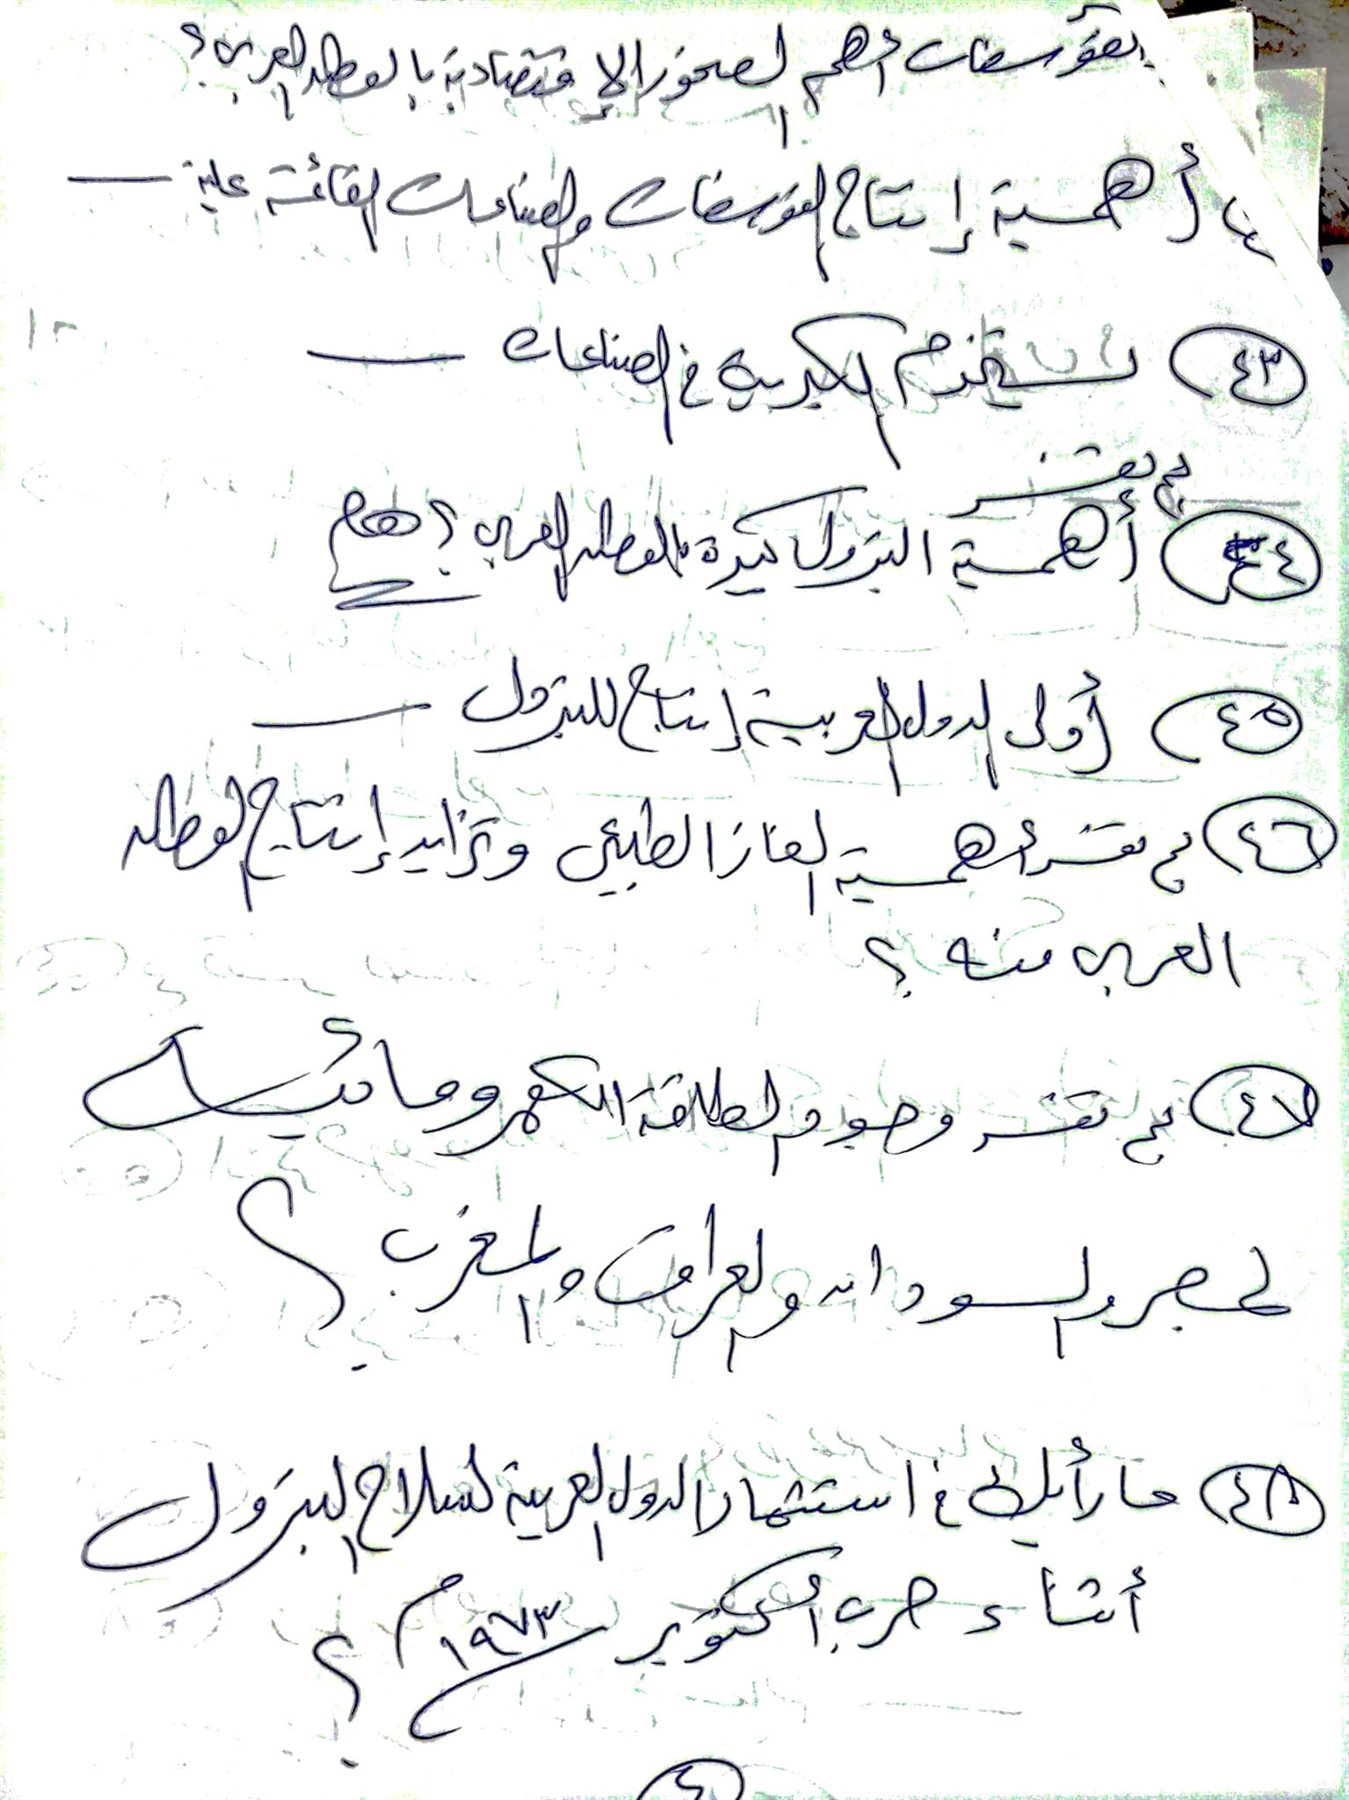 الفوسفات أهم الصخور الإقتصادية بالوطن العربى ؟
أهمية إنتاج الفوسفات والصناعات القائمة عليه ــــ
٤٣ يستخدم الكبريت فى الصناعات ــــ
بم تفسر
٤٤ أهمية البترول كبيرة بالوطن العربى ؟ هام
٤٥ أولى الدول العربية إنتاج للبترول ــــ
٤٦ بم تفسر أهمية الغاز الطبيعى وتزايد إنتاج الوطن
العربى منه ؟
٤٧ بم تفسر وجود الطاقة الكهرومائية
فى مصر والسودان والعراق والمغرب ؟
٤٨ ما رأيك فى استثمار الدول العربية لسلاح البترول
أثناء حرب أكتوبر ١٩٧٣م ؟